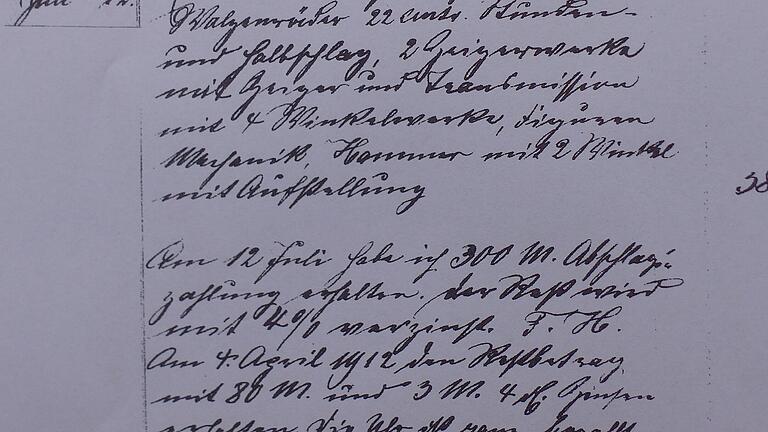 Juli 12.
Walzenräder 22 cmtr. Stunden-
und Halbschlag, 2 Zeigerwerke
mit Zeiger und Transmission
mit 4 Winkelwerke, Figuren
Mechanik, Hammer mit 2 Winkel
mit Aufstellung
38
Am 12 Juli habe ich 300 M. Abschlags-
zahlung erhalten. der Rest wird
mit 4% verzinst. F. H.
Am 4. April 1912 den Restbetrag
mit 80 M. und 3 M. 4 d. Zinsen
erhalten die Uhr ist ganz bezalt